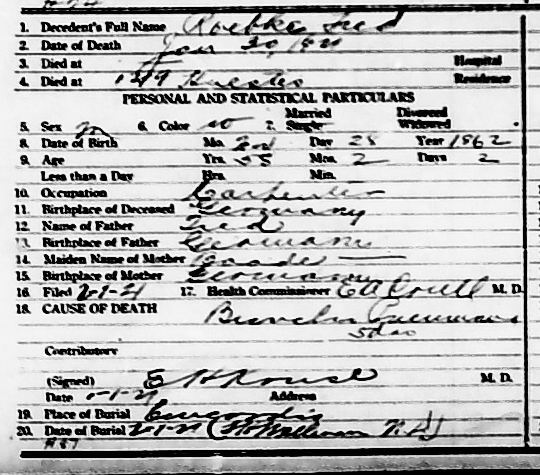 1. Decedent's Full Name Roebke Fred
2. Date of Death Jan 30,
3. Died at Hospital
4. Died at Residence
PERSONAL AND STATISTICAL PARTICULARS
5. Sex m 6. Color w 7. Married Single Divorced Widowed
8. Date of Birth Mo. Day 28 Year 1862
9. Age Yrs. Mos. 2 Days 2
Less than a Day Hrs. Min.
10. Occupation Carpenter
11. Birthplace of Deceased Germany
12. Name of Father Fred
13. Birthplace of Father Germany
14. Maiden Name of Mother
15. Birthplace of Mother Germany
16. Filed 2-1-21 17. Health Commissioner M. D.
18. CAUSE OF DEATH
Broncho Pneumonia
5 da
Contributory
(Signed) M. D.
Date Address
19. Place of Burial Concordia
20. Date of Burial 2-1-21